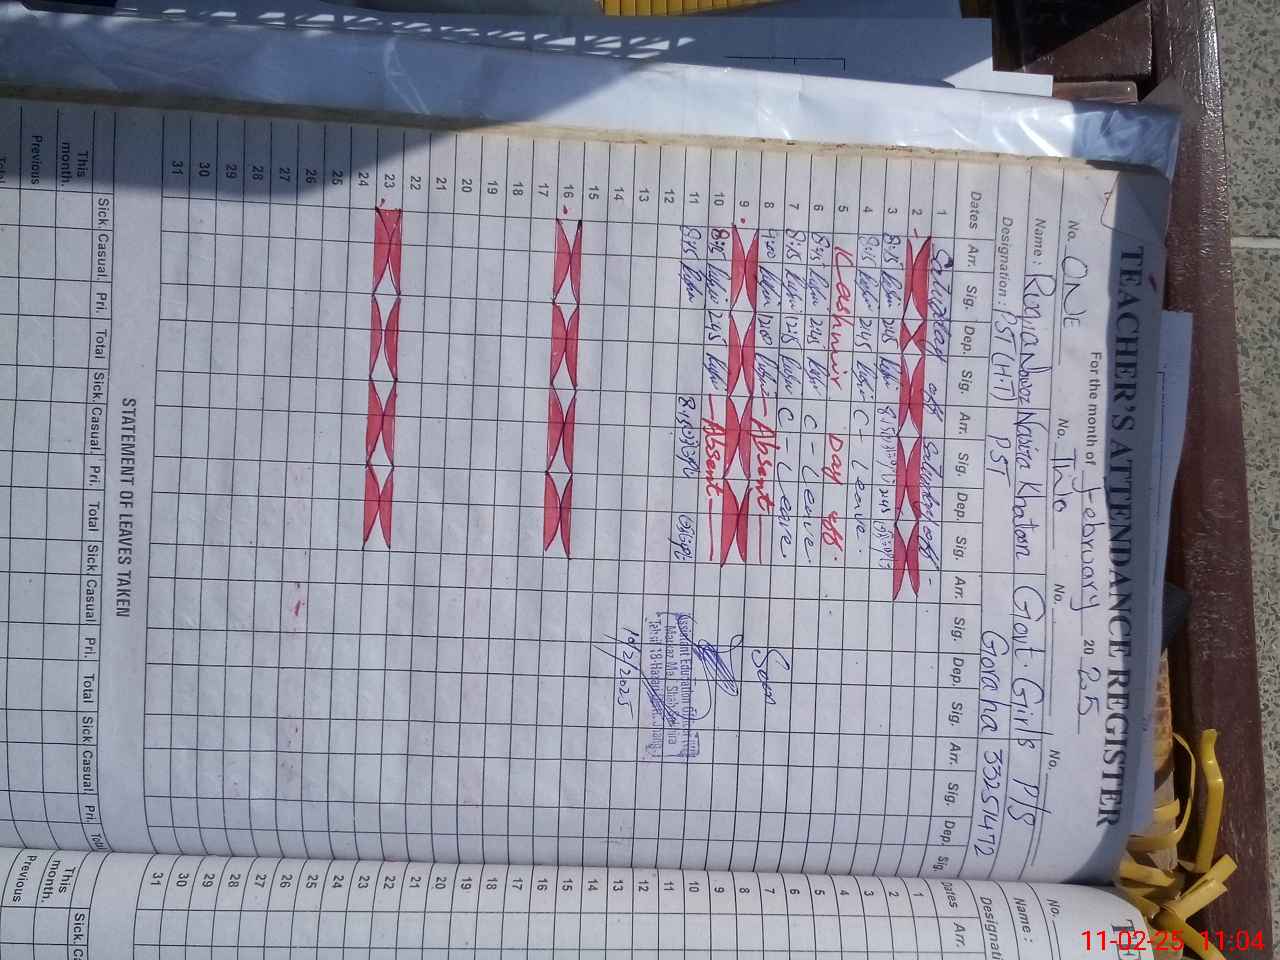 TEACHER'S ATTENDANCE REGISTER
For the month of February 2025
No. ONE No. Two No. No.
Name: Ruqia Nawaz Nasira Khatoon Govt. Girls P/S
Designation: PST (H.T) PST Goraha 33251472
Dates Arr. Sig. Dep. Sig. Arr. Sig. Dep. Sig. Arr. Sig. Dep. Sig. Arr. Sig. Dep. Sig.
1 Saturday off Saturday off
2
3 8:15 2:45 8:15 2:45
4 8:15 2:45 C - Leave.
5 Kashmir Day off.
6 8:15 2:45 C - Leave
7 8:15 12:15 C - Leave
8 12:00 Absent
9
10 8:15 2:45 Absent
11 8:15 8:15
12
13
14
15
16
17
18
19
20
21
22
23
24
25
26
27
28
29
30
31
Seen
Assistant Education Officer
Tehsil 18-Hazari
10/2/2025
STATEMENT OF LEAVES TAKEN
Sick. Casual. Pri. Total Sick Casual. Pri. Total Sick Casual Pri. Total Sick Casual. Pri. Total
This month.
Previous
Total
No.
Name:
Designati
Dates Arr.
1
2
3
4
5
6
7
8
9
10
11
12
13
14
15
16
17
18
19
20
21
22
23
24
25
26
27
28
29
30
31
Sick. Ca
This month.
Previous
11-02-25 11:04